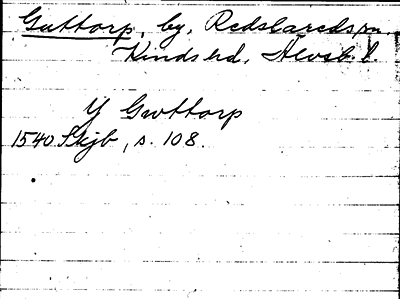 Guttorp, by, Redslareds sn.
Kinds hd, Älvsb. l.
Y Gwttorp
1540 Skjb, s. 108.